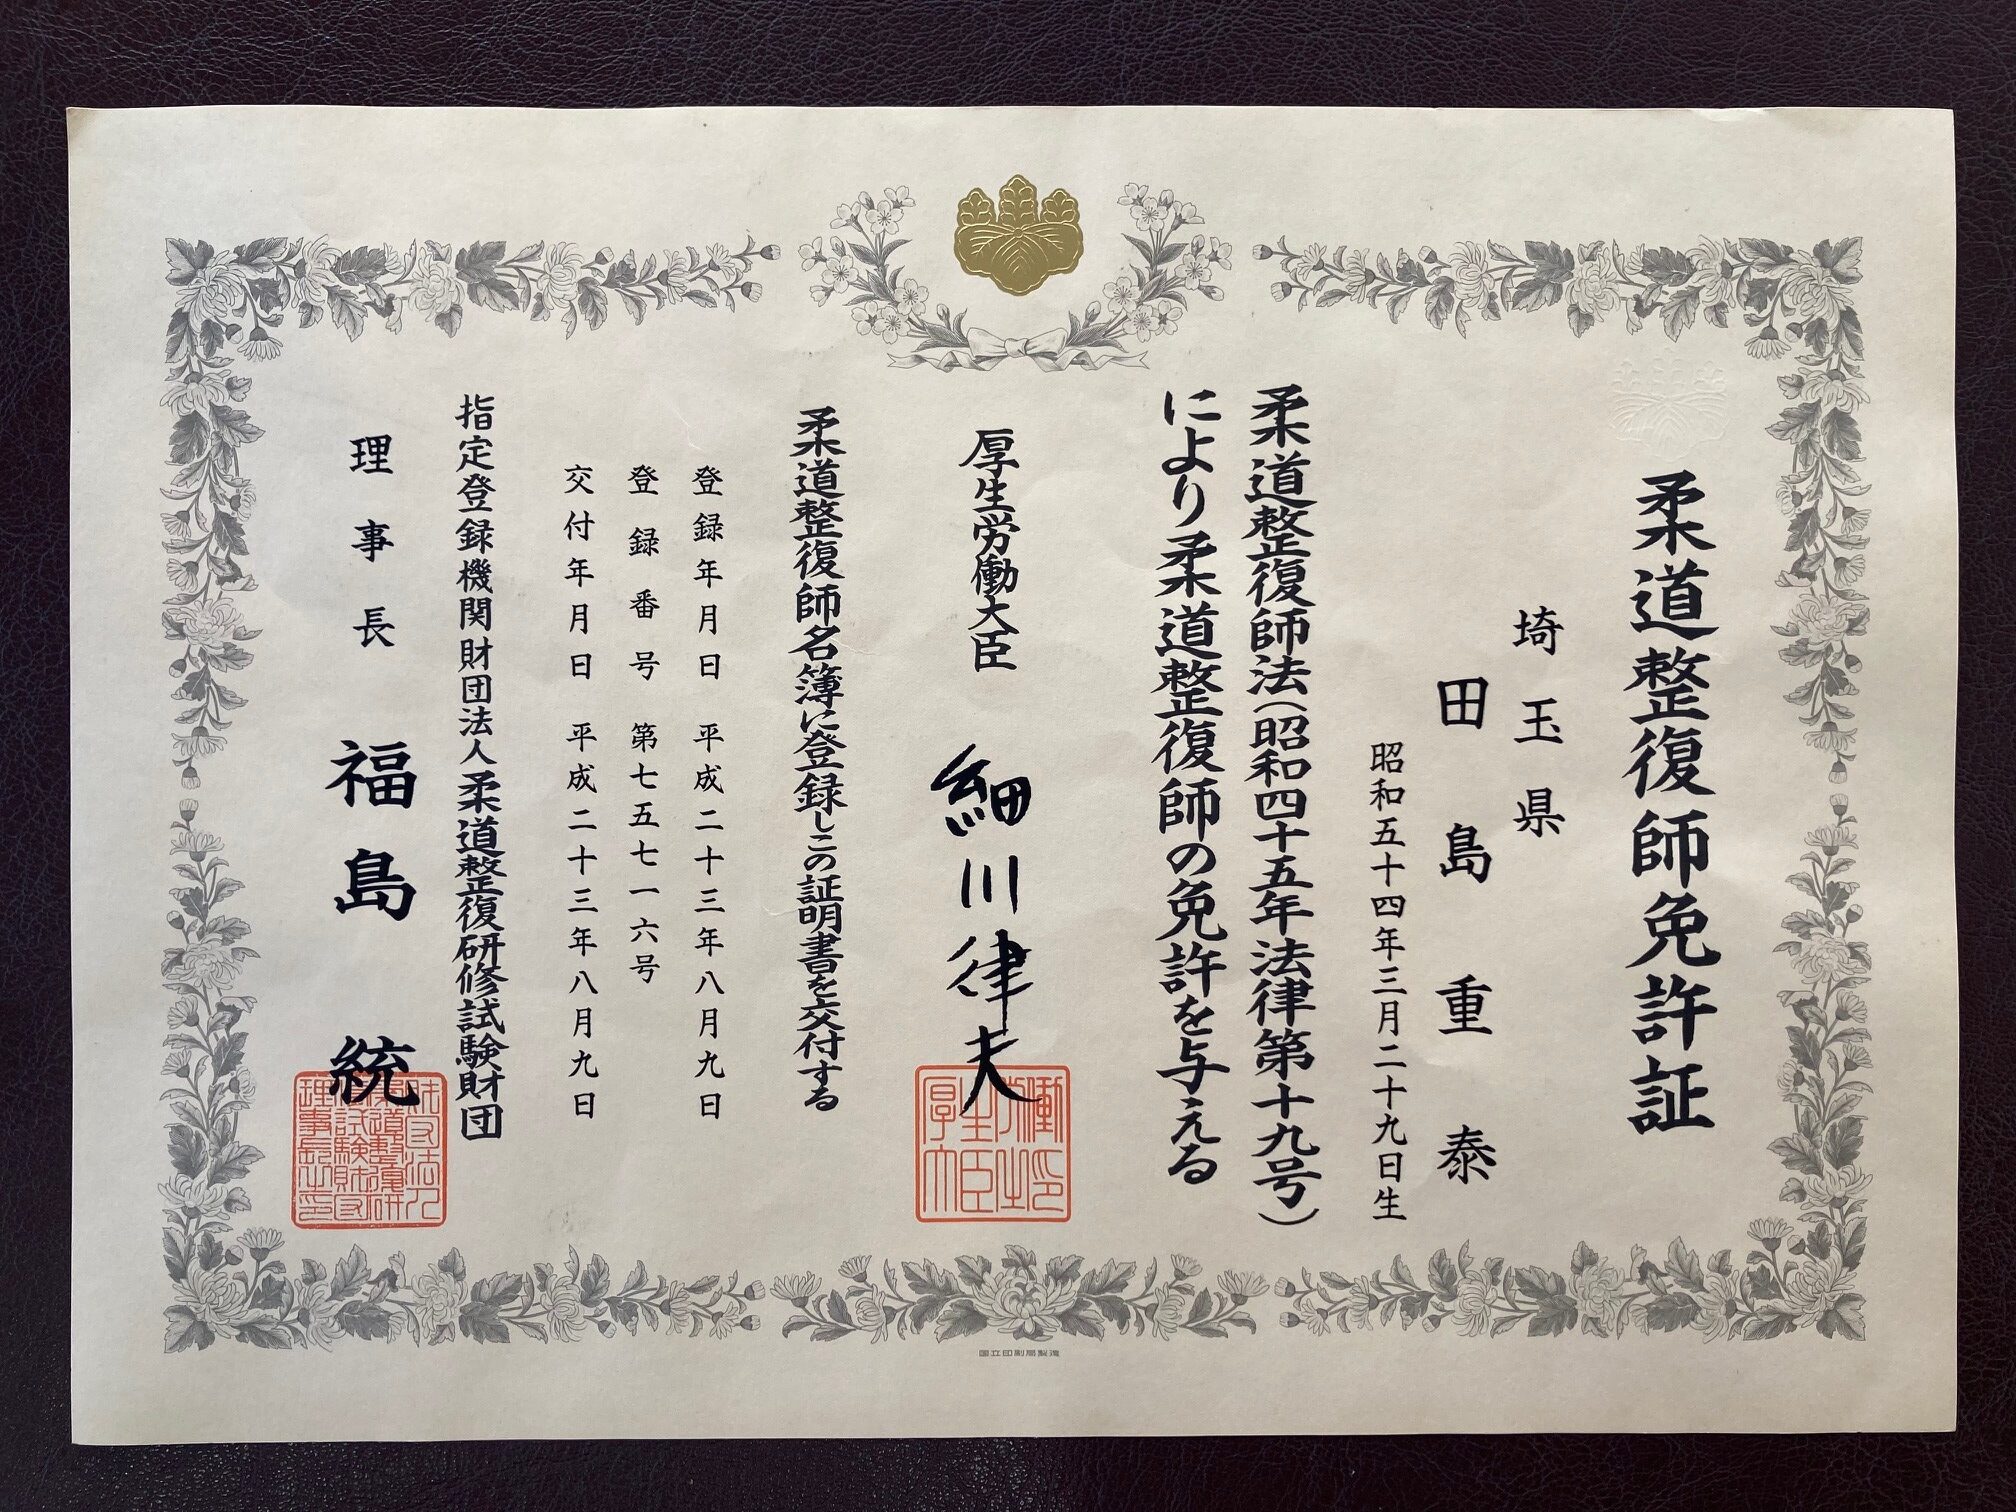 柔道整復師免許証
埼玉県
田島重泰
昭和五十四年三月二十九日生
柔道整復師法(昭和四十五年法律第十九号)
により柔道整復師の免許を与える
厚生労働大臣 細川律夫
厚生労働大臣之印
柔道整復師名簿に登録しこの証明書を交付する
登録年月日 平成二十三年八月九日
登録番号 第七五七一六号
交付年月日 平成二十三年八月九日
指定登録機関財団法人柔道整復研修試験財団
理事長 福島統
国立印刷局製造